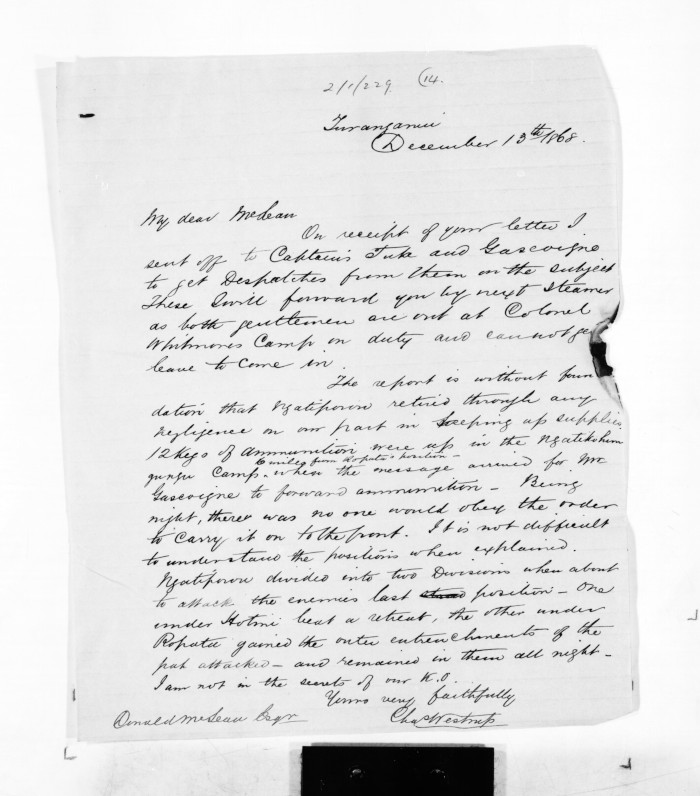 2/1/229 (14.
Turanganui
December 13th 1868.
My dear McLean
On receipt of your letter I
sent off to Captains Tuke and Gascoigne
to get Despatches from them on the subject
These I will forward you by next Steamer
as both gentlemen are out at Colonel
Whitmores Camp on duty and cannot get
leave to come in.
The report is without foun
dation that Ngatiporou retired through any
negligence on our part in keeping up supplies
12 kegs of ammunition were up in the Ngatikohun
gungu Camp. when the message arrived for Mr
6 miles from Ropata's position -
Gascoigne to forward ammunition - Being
night, there was no one would obey the order
to carry it on to the front. It is not difficult
to understand the positions when explained.
Ngatiporou divided into two Divisions when about
to attack the enemies last position - One
under Hotini beat a retreat, the other under
Ropata gained the outer entrenchments of the
pah attacked - and remained in them all night -
I am not in the secrets of our R.O.
Yours very faithfully
Chas Westrup
Donald McLean Esqr